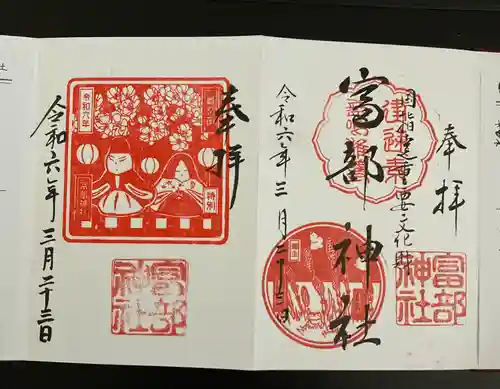 奉拝
国指定重要文化財
富部神社
富部神社
令和六年三月二十三日
奉拝
令和六年
特別
富部神社
富部神社
令和六年三月二十三日
社